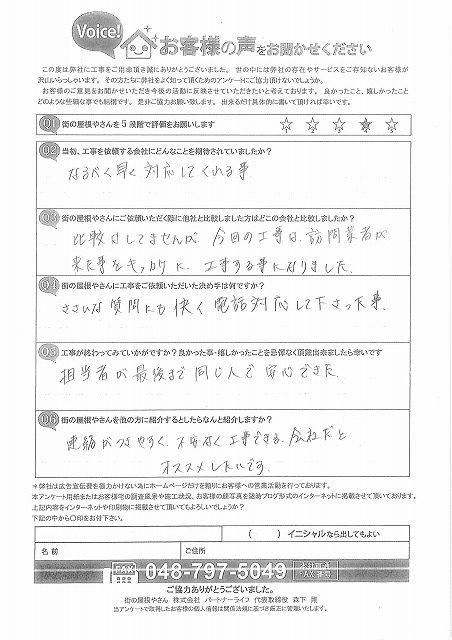 Voice!
お客様の声をお聞かせください
この度は弊社に工事をご用命頂き誠にありがとうございました。世の中には弊社の存在やサービスをご存知ないお客様が
沢山いらっしゃいます。その方たちに弊社をよく知って頂くためのアンケートにご協力頂けないでしょうか。
お客様のご意見をお聞かせいただき今後の活動に反映させていただきたいと考えております。良かったこと、嬉しかったこと
どのような些細な事でも結構です。是非ご協力お願い致します。出来るだけ具体的に書いて頂ければ幸いです。
Q1 街の屋根やさんを5段階で評価をお願いします ☆ ☆ ☆ ☆ ☆
Q2 当初、工事を依頼する会社にどんなことを期待されていましたか?
なるべく早く対応してくれる事
Q3 街の屋根やさんにご依頼いただく際に他社と比較しました方はどこの会社と比較しましたか?
比較はしてませんが 今回の工事は、訪問業者が
来た事をキッカケに、工事する事になりました。
Q4 街の屋根やさんに工事をご依頼いただいた決め手は何ですか?
ささいな質問にも快く電話対応して下さった事.
Q5 工事が終わってみていかがですか?良かった事・嬉しかったことを忌憚なく頂戴出来ましたら幸いです
担当者が最後まで同じ人で安心できた.
Q6 街の屋根やさんを他の方に紹介するとしたらなんと紹介しますか?
連絡がつきやすく、不安なく工事できる会社だと
オススメしたいです.
*弊社は広告宣伝費を極力かけない為にホームページだけを頼りにお客様への営業活動を行っております。
本アンケート用紙またはお客様宅の調査風景や施工状況、お客様の顔写真を随時ブログ形式のインターネットに掲載させて頂いております。
上記内容をインターネットや印刷物に掲載させて頂いてもよろしいでしょうか?
下記の中から〇印をお付下さい。
( ) イニシャルなら出してもよい
名前 ご住所
FAX 048-797-5049 FAX番号
ご協力ありがとうございました。
街の屋根やさん 株式会社 パートナーライフ 代表取締役 森下 剛
当アンケートで取得したお客様の個人情報は関係法規に基づき厳正に管理いたします。